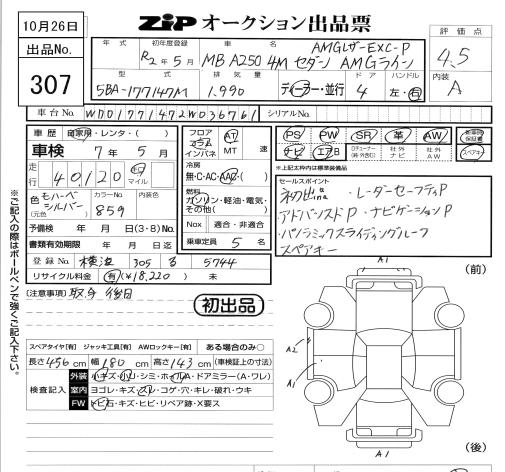 10月26日
出品No.
307
ZIP オークション出品票
年式 初年度登録 車名 評価点
R2年5月 MB A250 4M セダン AMGライン
AMGレザーEXC-P
4.5
型式 排気量 ドア ハンドル
5BA-177147M 1.990 ディーラー・並行 4 左・右
内装
A
車台No. WDD1771472W036761 シリアルNo.
車歴 自家用・レンタ・( )
車検 7年5月
走行 40,120 キロ マイル
色 モハーベシルバー (元色) カラーNo. 859 内装色
予備検 年 月 日(3・8)No.
書類有効期限 年 月 日迄
登録No. 横浜 305 る 5744
リサイクル料金 有(¥18,220) 未
フロア コラム インパネ AT MT 速
冷房 無・C・AC・AAC・( )
燃料 ガソリン・軽油・電気・その他( )
Nox 適合・非適合
乗車定員 5 名
PS PW SR 革 AW 新車時保証書
ナビ エアB TVチューナー(純・外含む) 社外ナビ 社外AW スペアキー
※上記太枠は標準装備品
セールスポイント
初出品 ・レーダーセーフティP
・アドバンスドP ・ナビゲーションP
・パノラミックスライディングルーフ
スペアキー
(注意事項) 取今 後日
初出品
※ご記入の際はボールペンで強くご記入下さい。
スペアタイヤ[有] ジャッキ工具[有] AWロックキー[有] ある場合のみ○
長さ456cm 幅180cm 高さ143cm (車検証上の寸法)
検査記入
外装 小キズ・小凹・シミ・ホイールA・ドアミラー(A・ワレ)
室内 ヨゴレ・キズ・スレ・コゲ・穴・キレ・破れ・ウキ
FW トビ石・キズ・ヒビ・リペア跡・X要ス
A1 (前)
A2
A1
A1 (後)